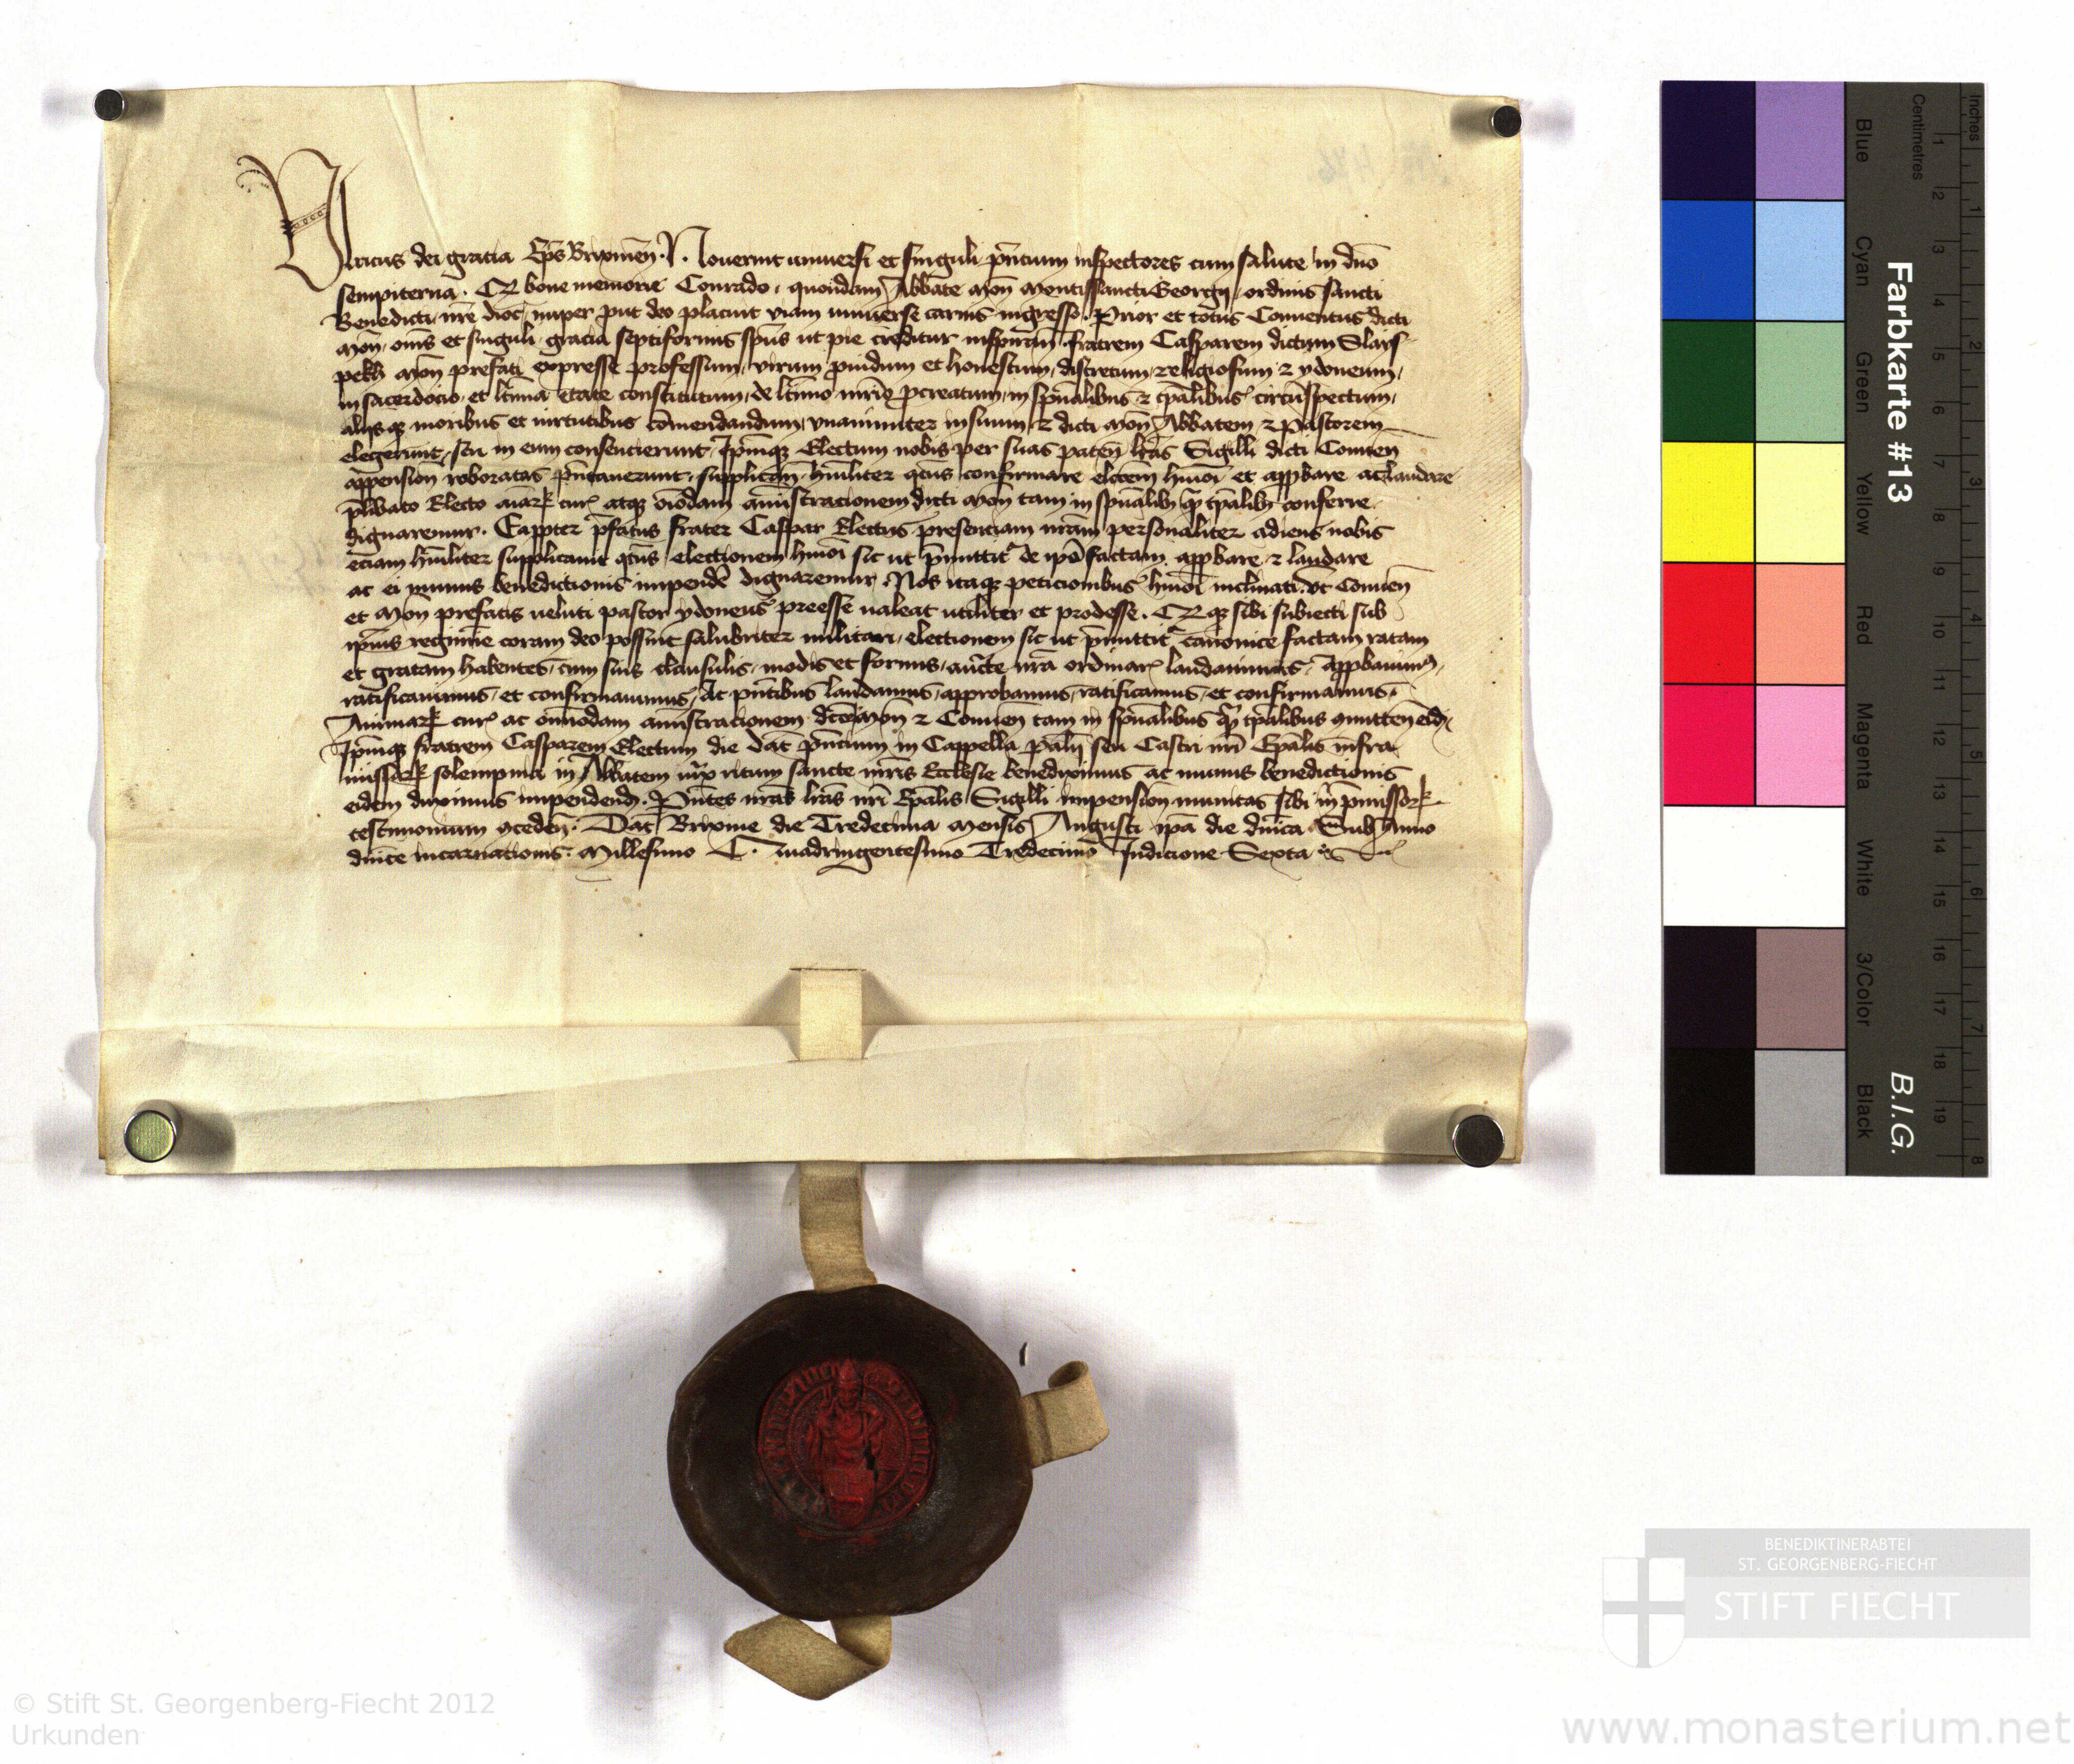 Ulricus dei gratia Ep̄s Brixineñ. Nouerint uniuersi et singuli p̄ncium inspectores cum salute in dn̄o
sempiternā. Cum bone memorie Conrado, quondam Abbate Moñ Montissancti Georgij, ordinis sancti
Benedicti, nr̄e dioc̄, nuper put deo placuit viam uniuerse carnis ingresso, Prior et totus Conuentus dicti
Moñ, om̄s et singuli, gracia septiformis sp̄us ut pie creditur inspirañ, fratrem Casparem dictum
Moñ prefati expresse professum, virum puidum et honestum, discretum, religiosum et ydoneum,
in sacerdocio, et ltīma etate constitutum, de ltīmo mr̄io pcreatum, in spūalibus et tp̄alibus circūspectum,
alijsqz moribus et uirtutibus cōmendandum, vnanimiter in suum et dicti Moñ Abbatem et Pastorem
elegerunt, seu in eum consencierunt, Ip̄mqz Electum nobis per suas pateñ lr̄as Sigilli dicti Conueñ
appension roboratas pn̄tauerunt, supplicañ hūiliter qtn̄s confirmare elēcem hmōi et appbare ac laudare
Electo atqz ōiodam am̄istracionem dicti Moñ tam in spūalibz qz tp̄alibz conferre
dignaremur. Eappter p̄fatus frater Caspar Electus presenciam nr̄am personaliter adiens nobis
eciam hūiliter supplicauit qtn̄s electionem hmōi sic ut p̄mittit' de ip̄o factam appbare et laudare
ac ei munus benedictionis impendē dignaremur. Nos itaqz peticionibus hmōi inclinati. vt Conueñ
et Moñ prefatis ueluti pastor ydoneus preesse ualeat utiliter et prodesse. Et qz sibi subiecti sub
ip̄ius regimīe coram deo possint salubriter militari, electionem sic ut p̄mittit' canonice factam ratam
et gratam habentes, cum suis clausulis, modis et formis, auc̄te nr̄a ordinar' laudauimus, appbauim9,
ratificauimus, et confirmauimus, Ac pn̄tibus laudamus, approbamus, ratificamus, et confirmamus.
Animar' cur' ac om̄iodam am̄istracionem Moñ et Conueñ tam in spūalibus qz tp̄alibus
Ip̄mqz fratrem Casparem Electum die dat̄ pn̄cium in Cappella pālij seu Castri nr̄i Epālis infra
missar' solempnia in Abbatem iux ritum sancte mr̄is Ecclesie benediximus ac munus benedictionis
eidem duximus impendend. Pn̄tes nr̄as lr̄as nr̄i Epālis Sigilli impension munitas sibi in p̄missor'
testimonium ɔcedeñ. Dat̄ Brixine die Tredecima Mensis Augusti ip̄a die dn̄ica Sub Anno
dn̄ice Incarnationis. Millesimo Quadringentesimo Tredecimo Indicione Sexta
Farbkarte #13
B.I.G.
Centimetres
Inches
Blue
Cyan
Green
Yellow
Red
Magenta
White
3/Color
Black
1 2 3 4 5 6 7 8 9 10 11 12 13 14 15 16 17 18 19
1 2 3 4 5 6 7 8
BENEDIKTINERABTEI
ST. GEORGENBERG-FIECHT
STIFT FIECHT
© Stift St. Georgenberg-Fiecht 2012
Urkunden
www.monasterium.net